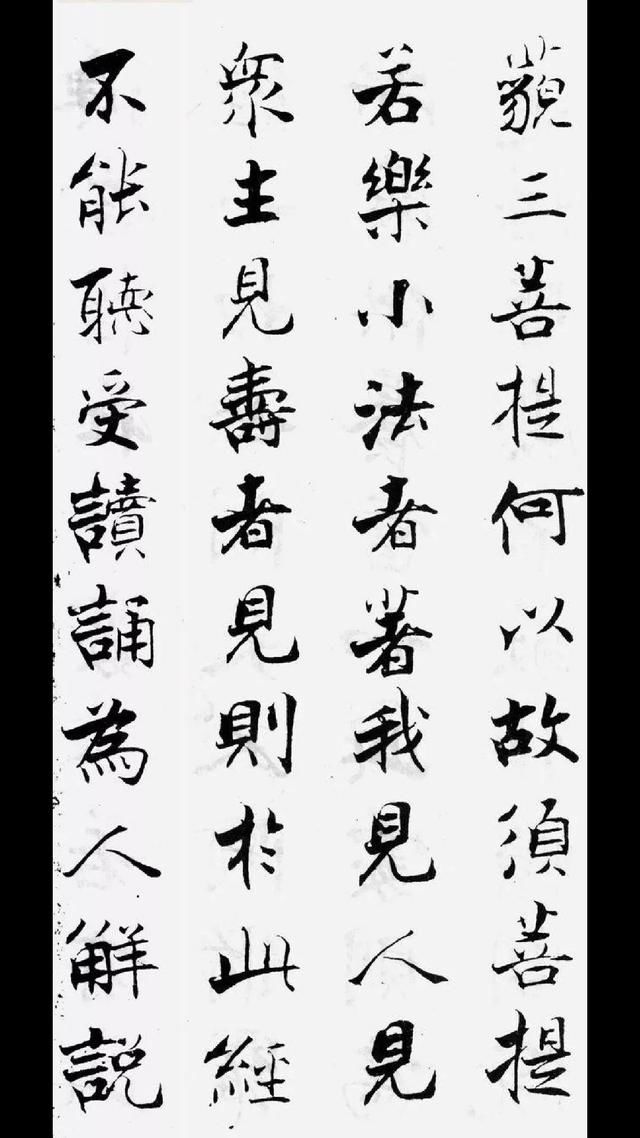 藐三菩提何以故須菩提
若樂小法者著我見人見
衆主見壽者見則於此經
不能聽受讀誦為人解説